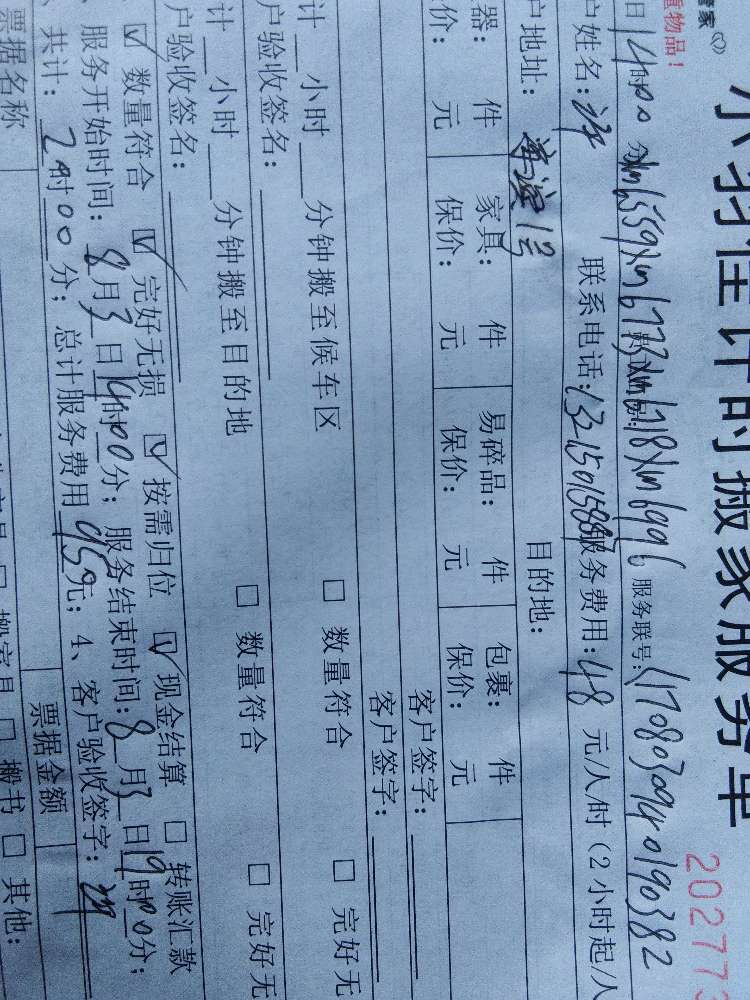 小羽佳计时搬家服务单
202773
管家
重物品！
日14时00分 xm6559 xm6773 xm6718 xm6996 服务联号：
户姓名： 联系电话：13215015887 服务费用：48 元/人/时（2小时起/人
户地址： 目的地：
器： 件 家具： 件 易碎品： 件 包裹： 件
价： 元 保价： 元 保价： 元 保价： 元
客户签字：
客户签字：
计 小时 分钟搬至候车区 □ 数量符合 □ 完好无
户验收签名：
计 小时 分钟搬至目的地 □ 数量符合 □ 完好无
户验收签名：
☑ 数量符合 ☑ 完好无损 ☑ 按需归位 ☑ 现金结算 □ 转账汇款
、服务开始时间：8月3日14时00分；服务结束时间：8月3日19时00分；
、共计：2时00分；总计服务费用950元；4、客户验收签字：
票据名称 票据金额
□ 搬家具 □ 搬书 □ 其他：